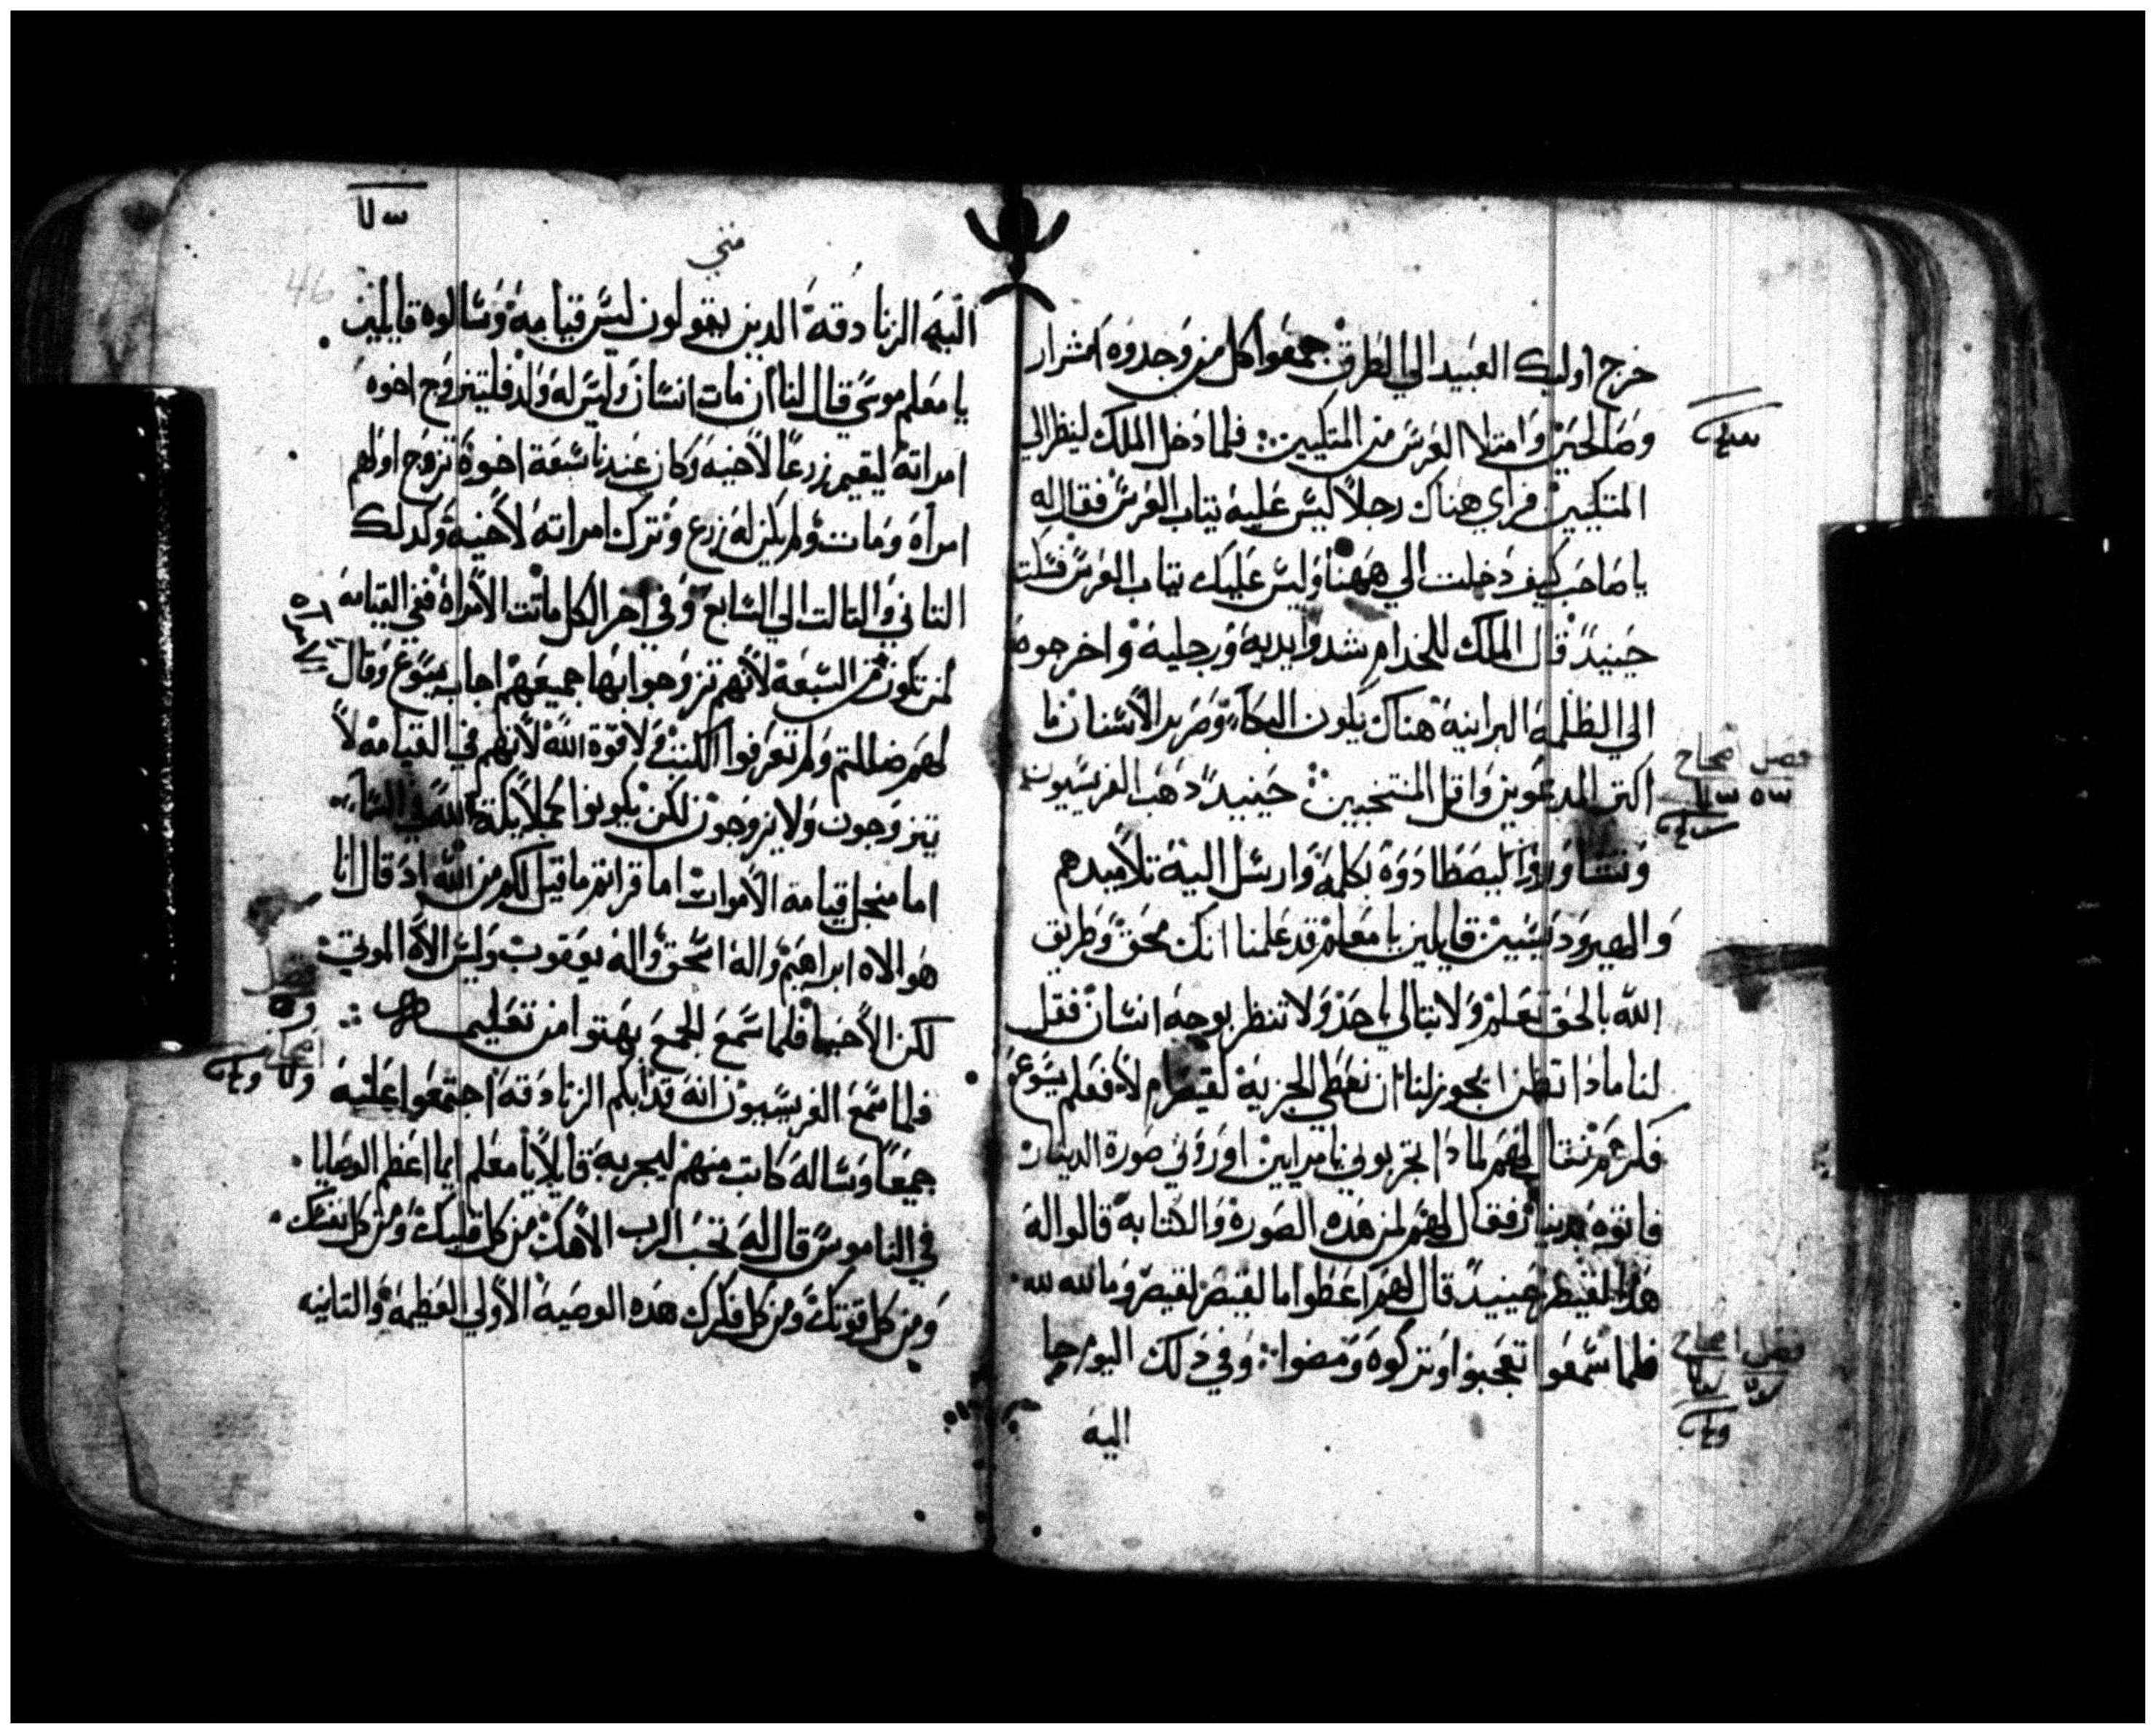 خرج اوليك العبيد الي الطرق جمعوا كل من وجدوه اشرار
وصالحين وامتلا العرس من المتكيين فلما دخل الملك لينظر الي
المتكيين فراي هناك رجلاً ليس عليه تياب العرس فقال له
يا صاحب كيف دخلت الي ههنا وليس عليك تياب العرس فسكت
حينيد قال الملك للخدام شدوا يديه ورجليه واخرجوه
الي الظلمه البرانيه هناك يكون البكاء وصرير الاسنان ما
اكتر المدعوين واقل المنتخبين حينيدً دهب الفريسيون
وتشاوروا ليصطادوه بكلمه وارسل اليه تلاميدهم
والهيرودسيين قايلين يا معلم قد علمنا انك محق وطريق
الله بالحق تعلم ولا تبالي باحد ولا تنظر بوجه انسان فقل
لنا مادا تظن ايجوز لنا ان نعطي الجزية لقيصر ام لا فعلم يسوع
فكرهم فقال لهم لمادا تجربوني يا مرايين اوروني صورة الدينار
فاتوه بدينار فقال لهم لمن هده الصورة والكتابه قالوا له
هدا لقيصر حينيد قال لهم اعطوا ما لقيصر لقيصر وما لله لله
فلما سمعوا تعجبوا وتركوه ومضوا وفي دلك اليوم جا
اليه
فصل اصحاح
فصل اصحاح
متي
46
اليه الزنادقه الدين يقولون ليس قيامه وسالوه قايلين
يا معلم موسي قال لنا ان مات انسان وليس له ولد فليتزوج اخوه
امراته ليقيم زرعاً لاخيه وكان عندنا سبعة اخوة تزوج اولهم
امراه ومات ولم يكن له زرع وترك امراته لاخيه وكدلك
التاني والتالت الي السابع وفي اخر الكل ماتت الامراة ففي القيامه
لمن تكون من السبعه لانهم تزوجوا بها جميعهم اجاب يسوع وقال
لهم ضللتم ولم تعرفوا الكتب ولا قوة الله لانهم في القيامه لا
يتزوجون ولا يزوجون لكن يكونوا كملايكة الله في السماء
اما من جل قيامة الاموات اما قراتم ما قيل لكم من الله اد قال انا
هو الاه ابراهيم واله اسحق واله يعقوب وليس الاه الموتي
لكن الاحيا فلما سمع الجمع بهتوا من تعليمه
فلما سمع الفريسيون انه قد ابكم الزنادقه اجتمعوا عليه
جميعاً وساله كاتب منهم ليجربه قايلاً يا معلم ايما اعظم الوصايا
في الناموس قال له تحب الرب الاهك من كل قلبك ومن كل نفسك
ومن كل قوتك ومن كل فكرك هده الوصيه الاولي العظيمه والتانيه